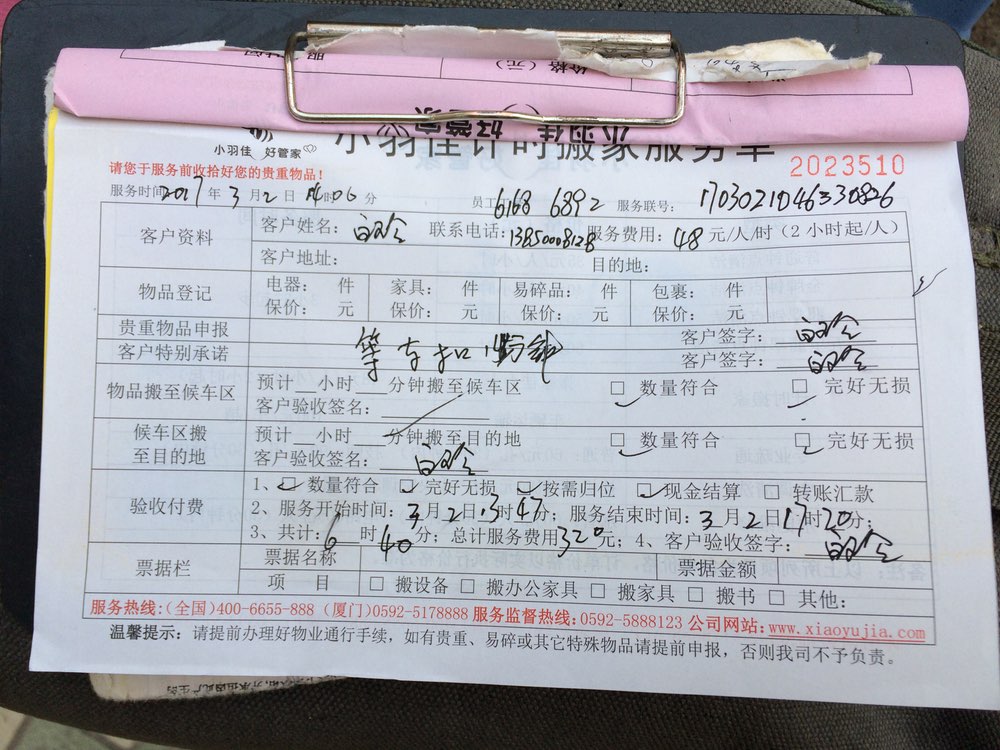 价格（元）
小羽佳 好管家
小羽佳计时搬家服务单
2023510
请您于服务前收拾好您的贵重物品！
服务时间 2017 年 3 月 2 日 14时06分 员工 6168 6892 服务联号：
客户资料 客户姓名： 联系电话：13850008128 服务费用：48 元/人/时（2小时起/人）
客户地址： 目的地：
物品登记 电器： 件 家具： 件 易碎品： 件 包裹： 件
保价： 元 保价： 元 保价： 元 保价： 元
贵重物品申报 客户签字：
客户特别承诺 等车扣 分钟 客户签字：
物品搬至候车区 预计__小时__分钟搬至候车区 □ 数量符合 □ 完好无损
客户验收签名：
候车区搬至目的地 预计__小时__分钟搬至目的地 □ 数量符合 □ 完好无损
客户验收签名：
验收付费 1、□ 数量符合 □ 完好无损 □ 按需归位 □ 现金结算 □ 转账汇款
2、服务开始时间：3月2日13时47分；服务结束时间：3月2日17时20分；
3、共计：6时40分；总计服务费用320元；4、客户验收签字：
票据栏 票据名称 票据金额
项 目 □ 搬设备 □ 搬办公家具 □ 搬家具 □ 搬书 □ 其他：
服务热线：（全国）400-6655-888（厦门）0592-5178888 服务监督热线：0592-5888123 公司网站：www.xiaoyujia.com
温馨提示：请提前办理好物业通行手续，如有贵重、易碎或其它特殊物品请提前申报，否则我司不予负责。